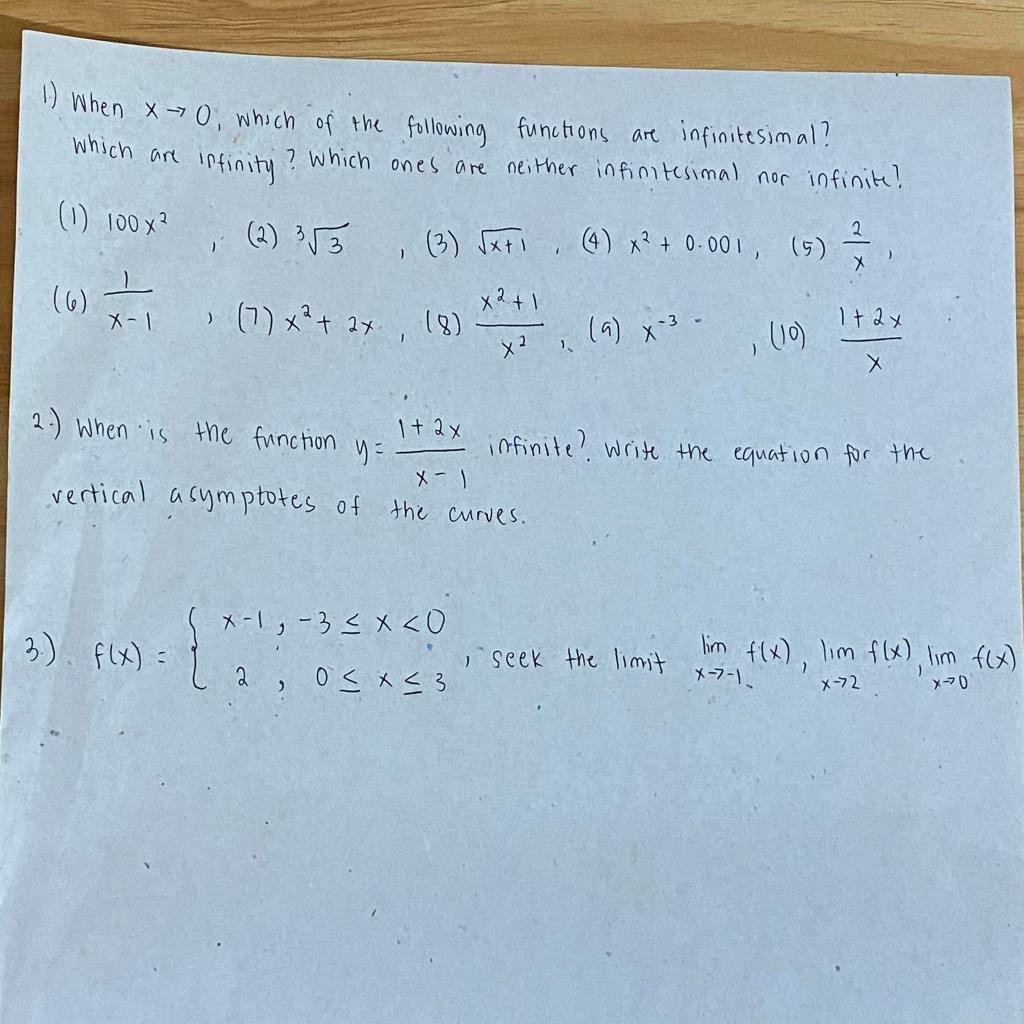 1) When x → 0, which of the following functions are infinitesimal?
which are infinity? Which ones are neither infinitesimal nor infinite?
(1) 100x², (2) ³√3, (3) √x+1, (4) x² + 0.001, (5) 2/x,
(6) 1/x-1, (7) x² + 2x, (8) x²+1/x², (9) x⁻³, (10) 1+2x/x
2.) When is the function y = 1+2x/x-1 infinite? Write the equation for the
vertical asymptotes of the curves.
3.) f(x) = { x-1, -3 ≤ x < 0
2, 0 ≤ x ≤ 3
, seek the limit lim x→-1 f(x), lim x→2 f(x), lim x→0 f(x)